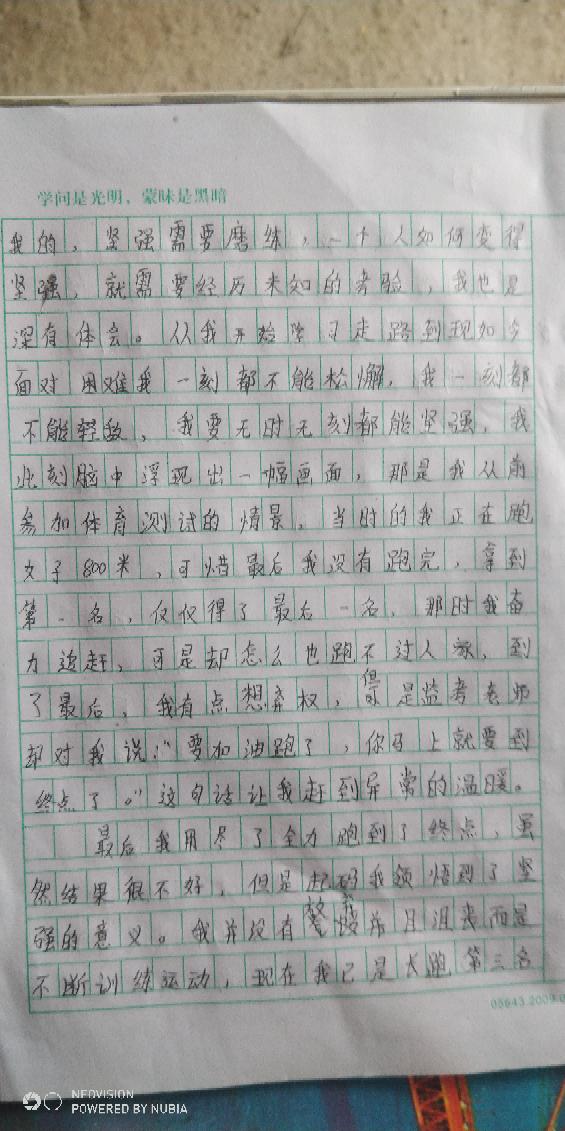 学问是光明，蒙昧是黑暗
我的，坚强需要磨练，一个人如何变得
坚强，就需要经历未知的考验，我也是
深有体会。从我开始学习走路到现如今
面对困难我一刻都不能松懈，我一刻都
不能轻敌，我要无时无刻都能坚强，我
此刻脑中浮现出一幅画面，那是我从前
参加体育测试的情景，当时的我正在跑
女子800米，可惜最后我没有跑完，拿到
第一名，仅仅得了最后一名，那时我奋
力追赶，可是却怎么也跑不过人家，到
了最后，我有点想弃权，但是监考老师
却对我说：“要加油跑了，你马上就要到
终点了。”这句话让我赶到异常的温暖。
最后我用尽了全力跑到了终点，虽
然结果很不好，但是起码我领悟到了坚
强的意义。我并没有并且沮丧而是
不断训练运动，现在我已是长跑第三名
05643.2009.0
NEOVISION
POWERED BY NUBIA